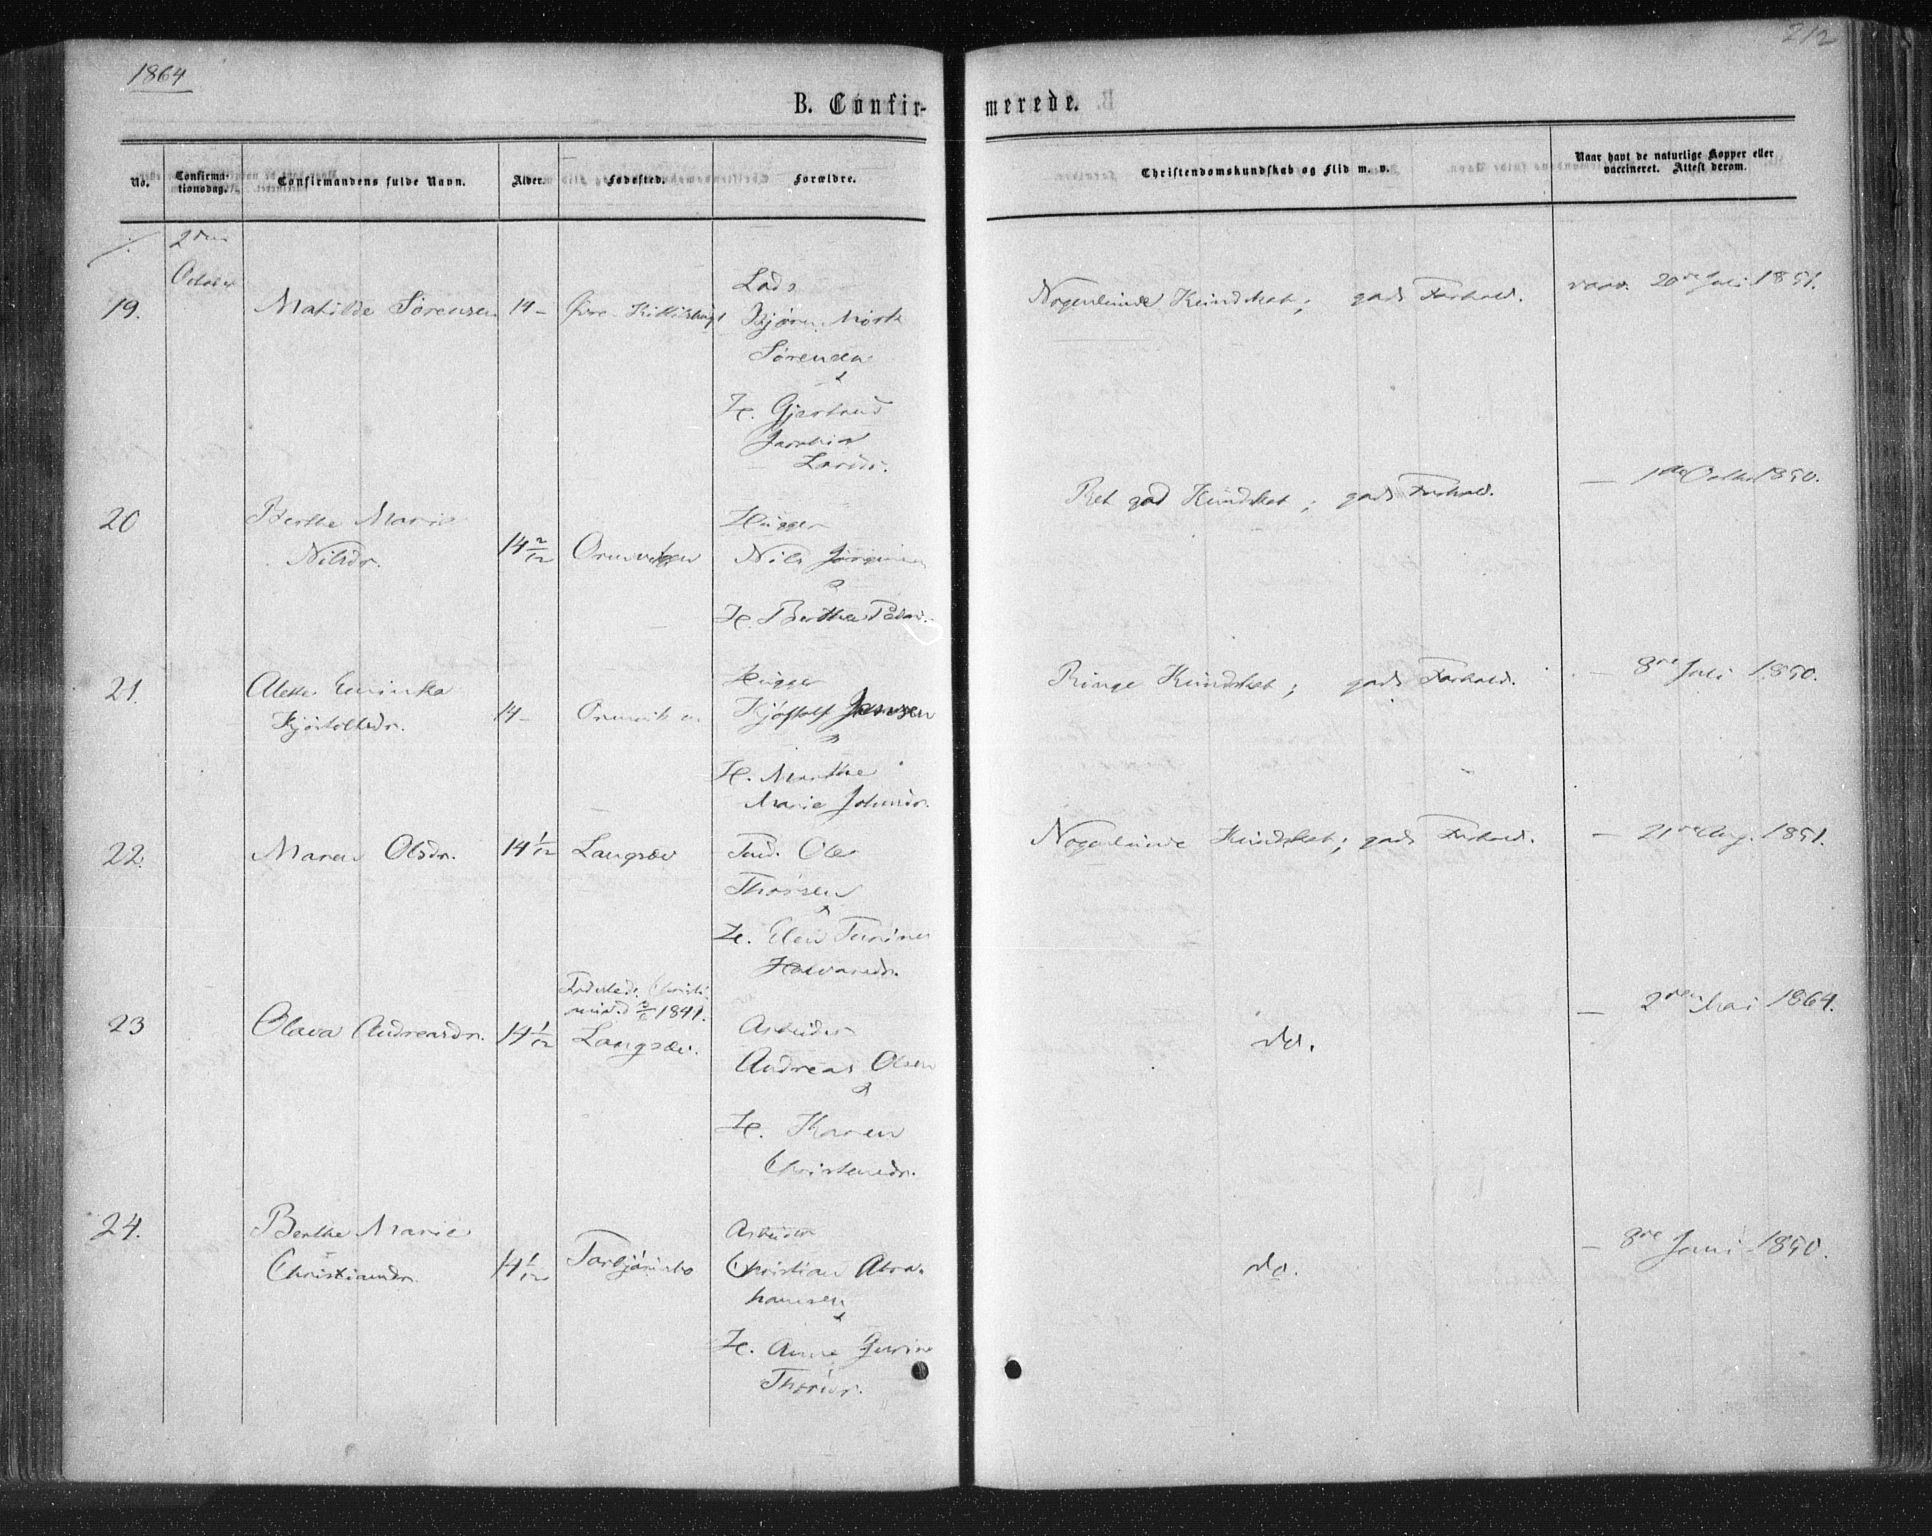 1864
212
B. Confir-
merede.
No.
Confirma-
tionsdag.
Confirmandens fulde Navn.
Alder.
Fødested.
Forældre.
Christendomskundskab og Flid m. v.
Naar havt de naturlige Kopper eller
vaccineret. Attest derom.
2den
October
19.
Mathilde Sørensen
14-
Lods
Bjørn Mørk
Sørensen
H.
Jacobine
Larsdr.
Nogenlunde Kundskab; gods Forhold.
vacc. 20de Juli 1851.
20
Berthe Marie
Nilsdr.
14 2/12
Ormviken
Hugger
Nils Jørgensen
H. Berthe
Ret god Kundskab; gods Forhold.
— 1ste Octbr 1850.
21.
Kjøstolfsdr.
14-
Ormviken
Hugger
Kjøstolf Jensen
H. Marthe
Marie
Ringe Kundskab; gods Forhold.
— 8de Juli 1850.
22.
Maren Olsdr.
14 1/12
Langsæv
Ole
Thorsen
H. Elen
Halvorsdr.
Nogenlunde Kundskab; gods Forhold.
— 21de Aug. 1851.
23
Olava Andreasdr.
14 1/12
1841.
Langsæv.
Arbeider
Andreas Olsen
H. Karen
Christensdr.
do.
— 2den Mai 1864.
24.
Berthe Marie
Christiansdr.
14 1/12
Torbjørnsbo
Arbeider
Christian Abra-
hamsen
H. Anne
do.
— 8de Juni 1850.